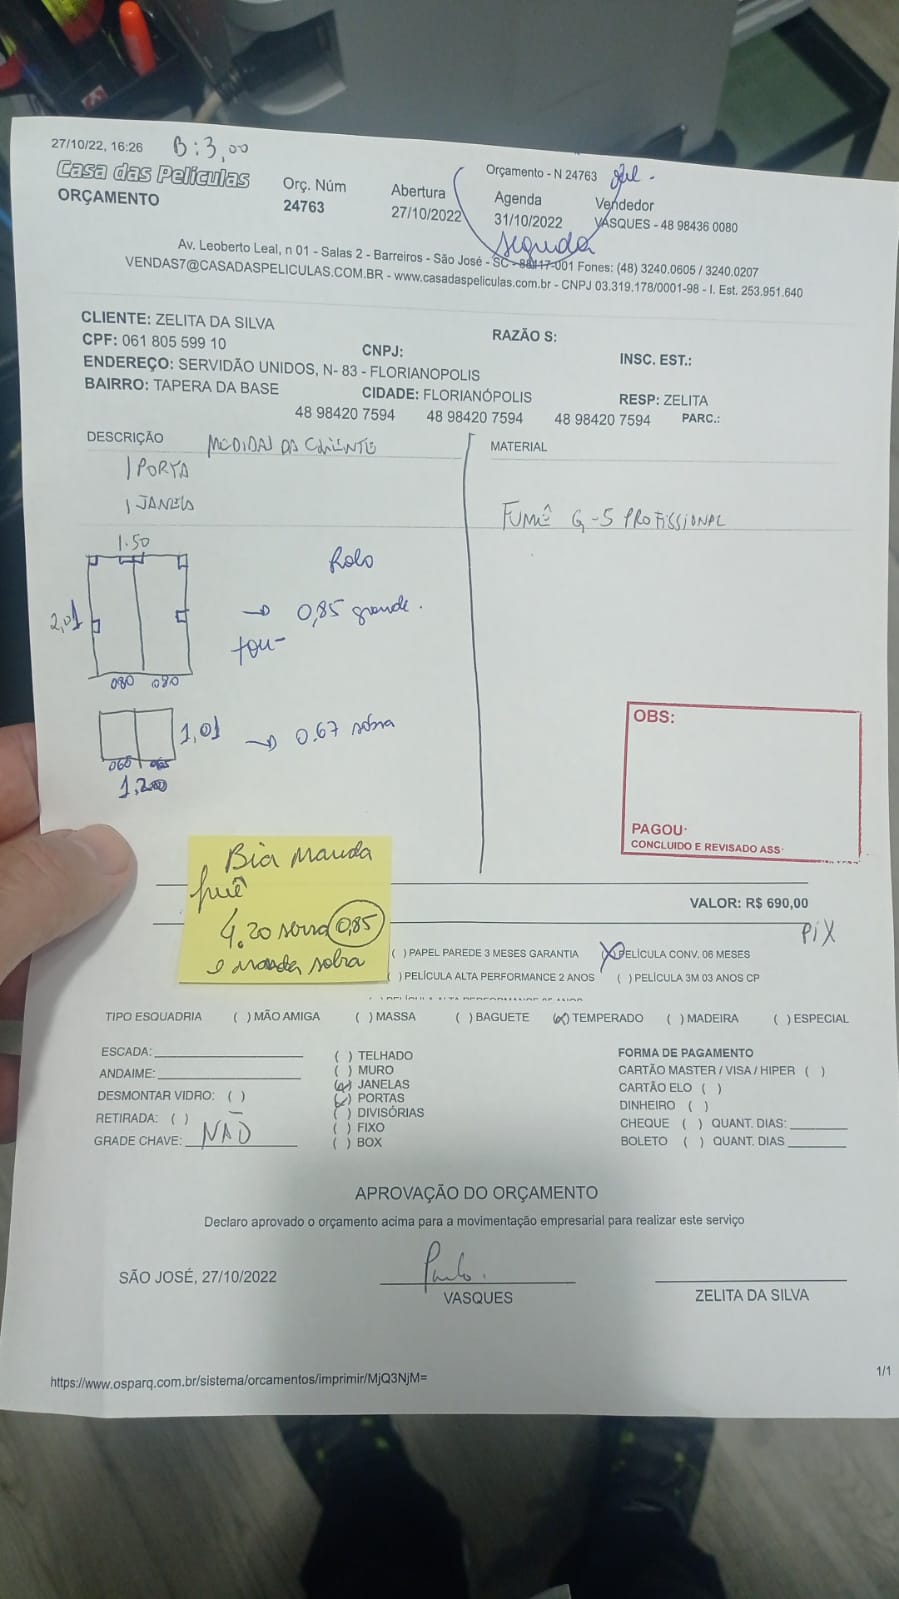 27/10/22, 16:26
B:3,00
Orçamento - N 24763
Casa das Películas
ORÇAMENTO
Orç. Núm
24763
Abertura
27/10/2022
Agenda
31/10/2022
segunda
Vendedor
VASQUES - 48 98436 0080
Av. Leoberto Leal, n 01 - Salas 2 - Barreiros - São José - SC - 88117-001 Fones: (48) 3240.0605 / 3240.0207
VENDAS7@CASADASPELICULAS.COM.BR - www.casadaspeliculas.com.br - CNPJ 03.319.178/0001-98 - I. Est. 253.951.640
CLIENTE: ZELITA DA SILVA
RAZÃO S:
CPF: 061 805 599 10
CNPJ:
INSC. EST.:
ENDEREÇO: SERVIDÃO UNIDOS, N- 83 - FLORIANOPOLIS
BAIRRO: TAPERA DA BASE
CIDADE: FLORIANÓPOLIS
RESP: ZELITA
48 98420 7594 48 98420 7594 48 98420 7594 PARC.:
DESCRIÇÃO
MEDIDAS DA CLIENTE
MATERIAL
1 PORTA
1 JANELA
FUMÊ G-5 PROFISSIONAL
1.50
2,01
080 080
Rolo
0,85 grande.
1,01
060
1,20
0.67 sobra
OBS:
PAGOU:
CONCLUIDO E REVISADO ASS:
Bia manda
4.20 0,85
e manda sobra
VALOR: R$ 690,00
PiX
( ) PAPEL PAREDE 3 MESES GARANTIA (X) PELÍCULA CONV. 06 MESES
( ) PELÍCULA ALTA PERFORMANCE 2 ANOS ( ) PELÍCULA 3M 03 ANOS CP
TIPO ESQUADRIA ( ) MÃO AMIGA ( ) MASSA ( ) BAGUETE (X) TEMPERADO ( ) MADEIRA ( ) ESPECIAL
ESCADA:
ANDAIME:
DESMONTAR VIDRO: ( )
RETIRADA: ( )
GRADE CHAVE: NÃO
( ) TELHADO
( ) MURO
(X) JANELAS
(X) PORTAS
( ) DIVISÓRIAS
( ) FIXO
( ) BOX
FORMA DE PAGAMENTO
CARTÃO MASTER / VISA / HIPER ( )
CARTÃO ELO ( )
DINHEIRO ( )
CHEQUE ( ) QUANT. DIAS:
BOLETO ( ) QUANT. DIAS
APROVAÇÃO DO ORÇAMENTO
Declaro aprovado o orçamento acima para a movimentação empresarial para realizar este serviço
SÃO JOSÉ, 27/10/2022
Paulo.
VASQUES
ZELITA DA SILVA
https://www.osparq.com.br/sistema/orcamentos/imprimir/MjQ3NjM=
1/1